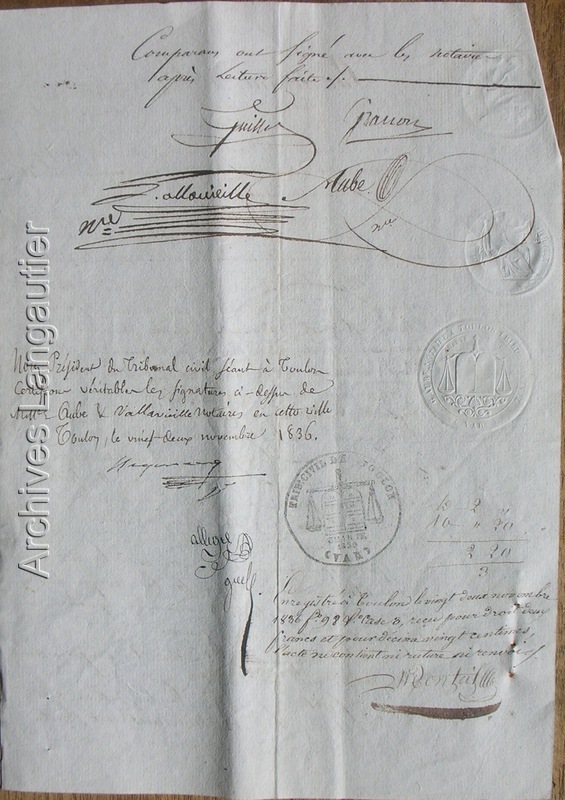 Comparans ont signé avec les notaires
après lecture faite ./.
Granon
Vallavieille Aube
nre nre
Nous Président du Tribunal civil séant à Toulon
Certifions véritables les signatures ci-dessus de
Mtres Aube & Vallavieille notaires en cette ville
Toulon, le vingt-deux novembre 1836.
TRIB. CIVIL DE TOULON
CHARTE
1830
(VAR)
allegre
greff
10 " 20
2 20
3
Enregistré à Toulon le vingt deux novembre
1836 fo 92 Vo Case 8, reçu pour droit deux
francs et pour décime vingt centimes,
l'acte ne contient ni rature ni renvoi
Archives Langautier